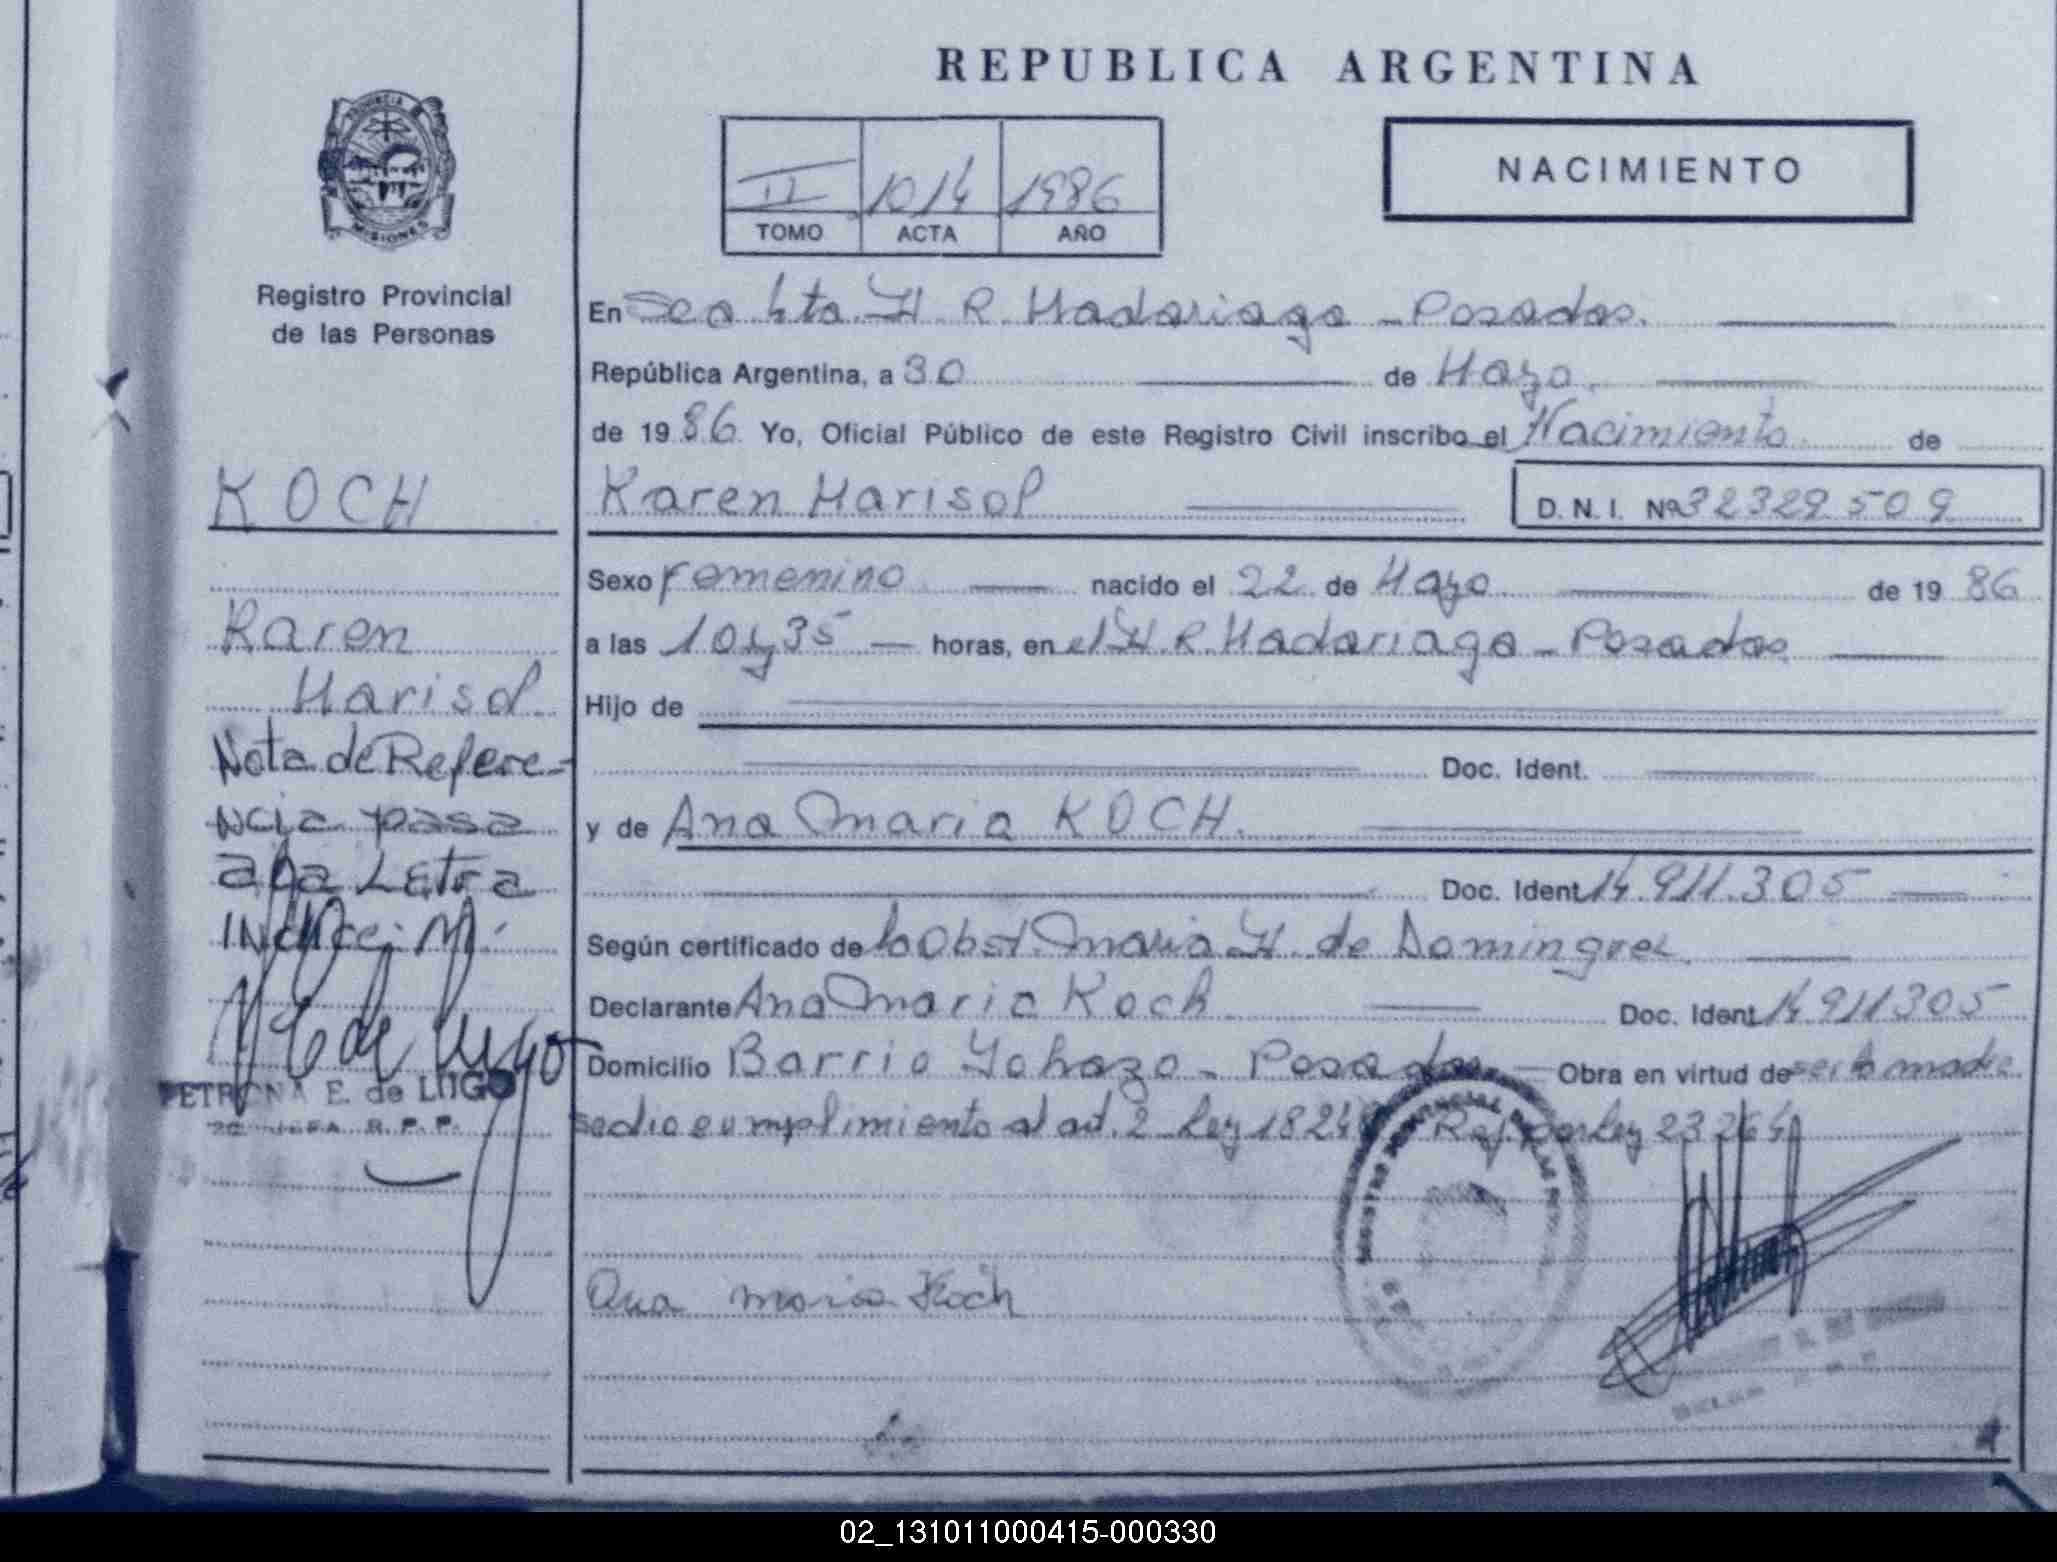 REPUBLICA ARGENTINA
PROVINCIA DE
MISIONES
Registro Provincial
de las Personas
II 1014 1986
TOMO ACTA AÑO
NACIMIENTO
En Secc 4ta. H. R. Madariaga - Posadas.
República Argentina, a 30 de Mayo
de 1986 Yo, Oficial Público de este Registro Civil inscribo el Nacimiento de
KOCH
Karen Marisol
D. N. I. Nº 32329509
Karen
Marisol
Nota de Refere-
ncia pasa
a la Letra
Indice: M.
PETRONA E. de LUGO
JEFA R. P. P.
Sexo femenino nacido el 22 de Mayo de 1986
a las 10 y 35 horas, en el H. R. Madariaga - Posadas
Hijo de
Doc. Ident.
y de Ana Maria KOCH.
Doc. Ident. 14.911.305
Según certificado de la Obst. Maria H. de Dominguez
Declarante Ana Maria Koch Doc. Ident. 14911305
Domicilio Barrio Yohazo - Posadas. Obra en virtud de ser la madre
se dio cumplimiento al art. 2 Ley 18248 Ref. por Ley 23264
REGISTRO PROVINCIAL DE LAS
Ana maria Koch
02_131011000415-000330